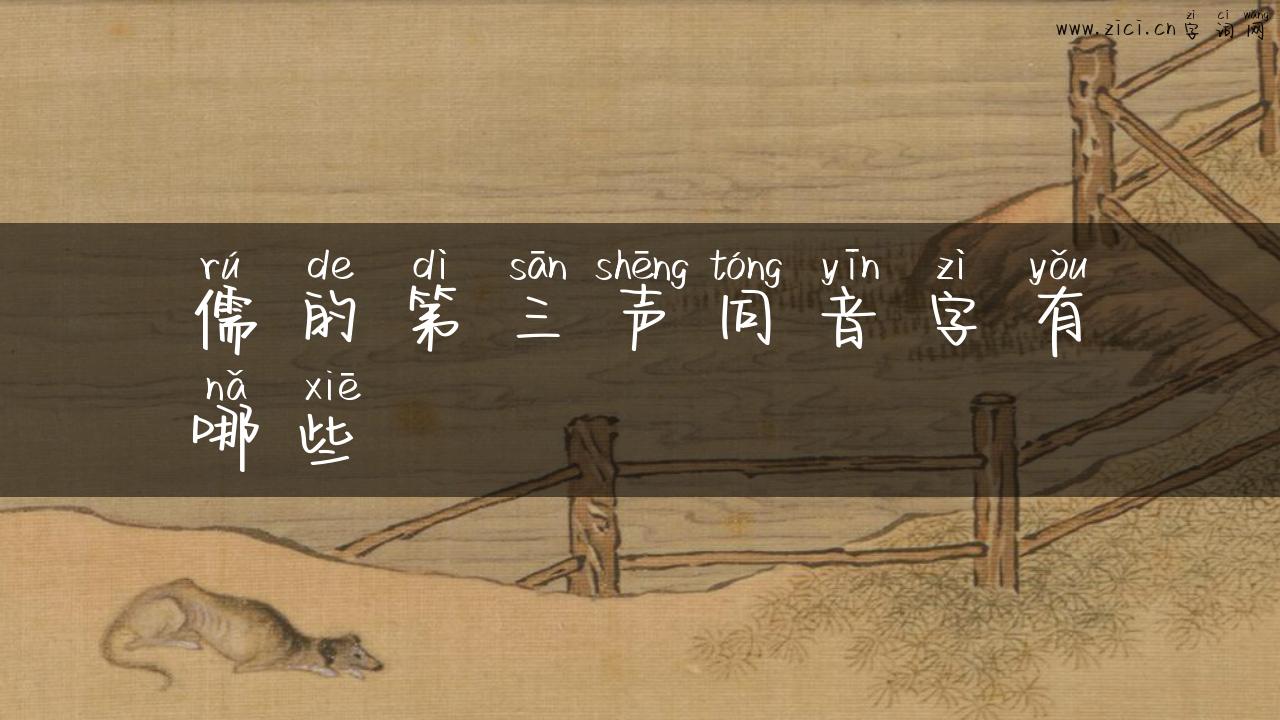 zì cí wǎng
www.zici.cn 字词网
rú de dì sān shēng tóng yīn zì yǒu
儒的第三声同音字有
nǎ xiē
哪些